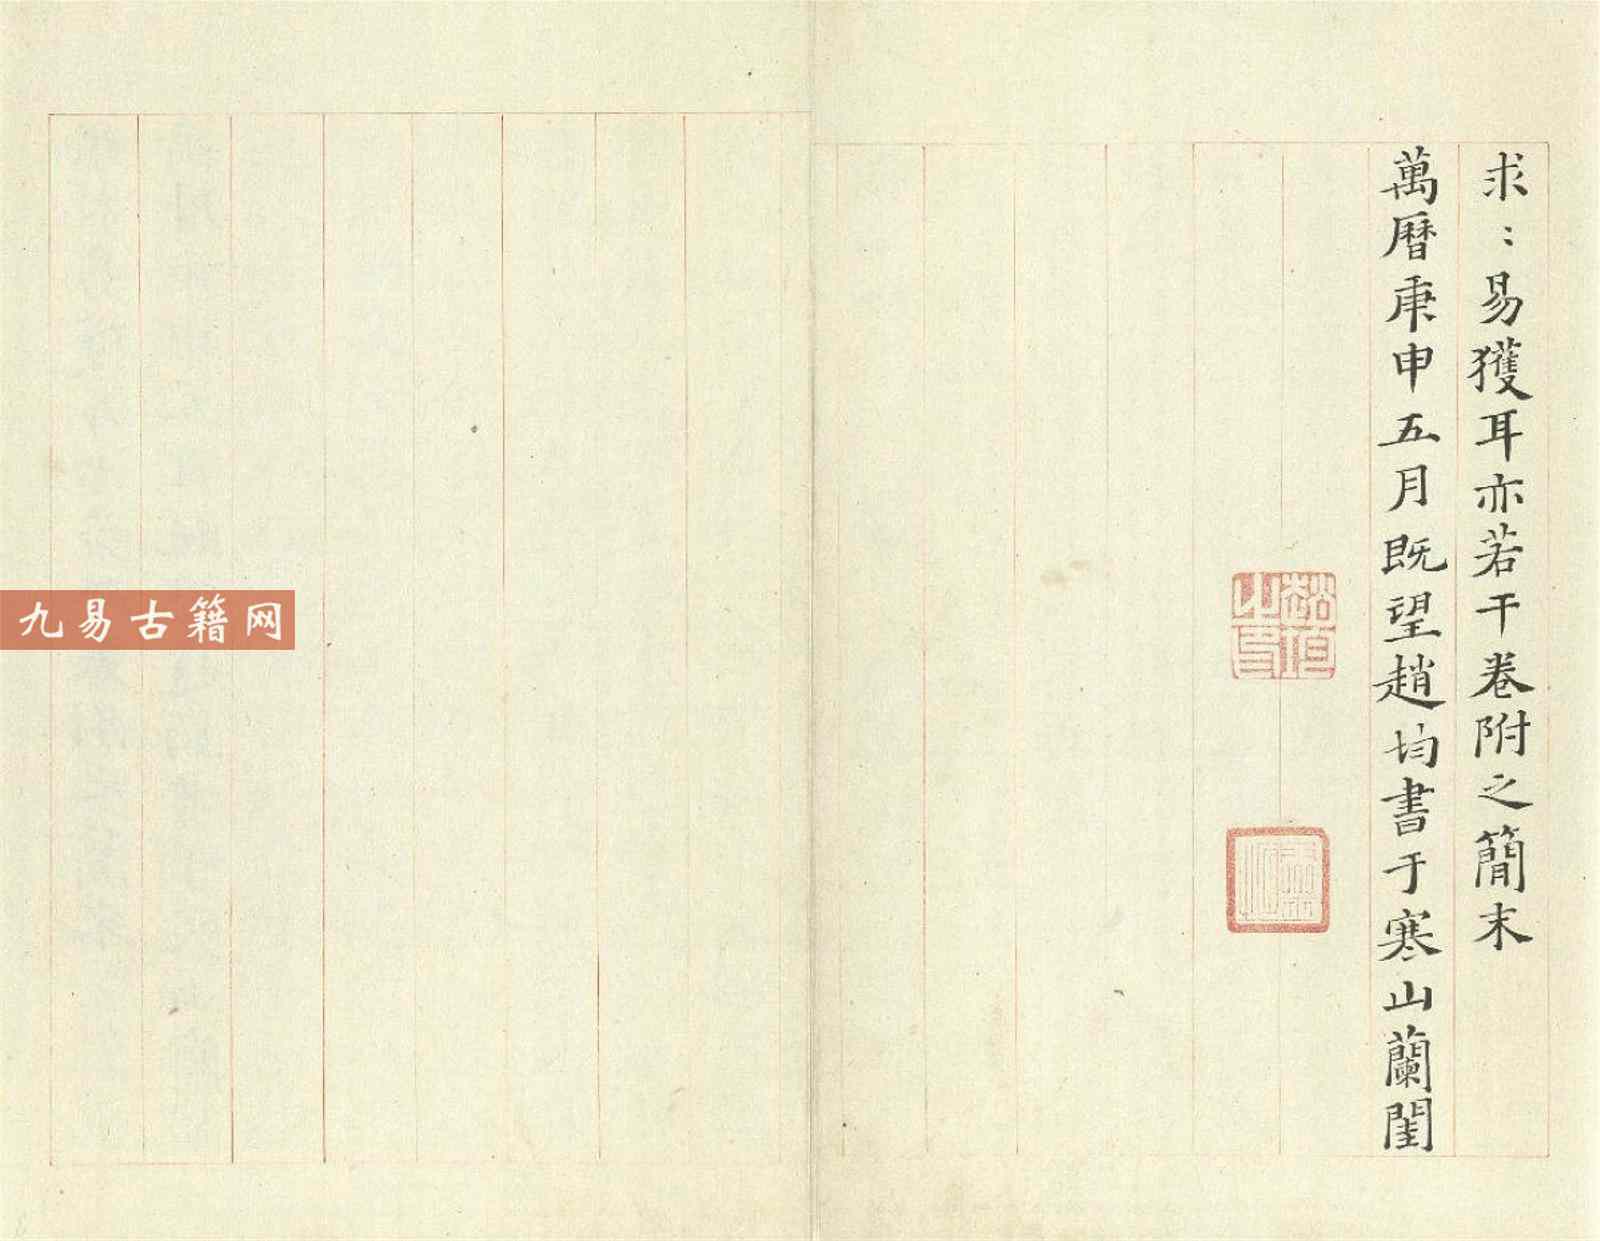 求：易獲耳亦若干卷附之簡末
萬曆庚申五月既望趙均書于寒山蘭閨
趙頵之印
九易古籍网